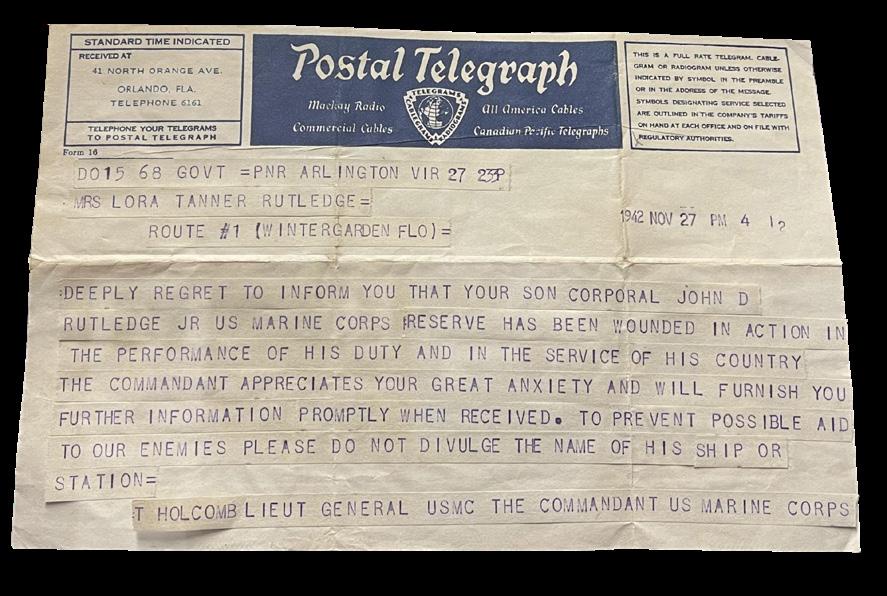 STANDARD TIME INDICATED
RECEIVED AT
41 NORTH ORANGE AVE.
ORLANDO, FLA.
TELEPHONE 6161
TELEPHONE YOUR TELEGRAMS
TO POSTAL TELEGRAPH
Form 16
Postal Telegraph
Mackay Radio
Commercial Cables
TELEGRAMS
CABLEGRAMS RADIOGRAMS
All America Cables
Canadian Pacific Telegraphs
THIS IS A FULL RATE TELEGRAM, CABLE-
GRAM OR RADIOGRAM UNLESS OTHERWISE
INDICATED BY SYMBOL IN THE PREAMBLE
OR IN THE ADDRESS OF THE MESSAGE.
SYMBOLS DESIGNATING SERVICE SELECTED
ARE OUTLINED IN THE COMPANY'S TARIFFS
ON HAND AT EACH OFFICE AND ON FILE WITH
REGULATORY AUTHORITIES.
DO15 68 GOVT =PNR ARLINGTON VIR 27 23P
MRS LORA TANNER RUTLEDGE=
ROUTE #1 (WINTERGARDEN FLO)=
1942 NOV 27 PM 4 12
:DEEPLY REGRET TO INFORM YOU THAT YOUR SON CORPORAL JOHN D
RUTLEDGE JR US MARINE CORPS RESERVE HAS BEEN WOUNDED IN ACTION IN
THE PERFORMANCE OF HIS DUTY AND IN THE SERVICE OF HIS COUNTRY
THE COMMANDANT APPRECIATES YOUR GREAT ANXIETY AND WILL FURNISH YOU
FURTHER INFORMATION PROMPTLY WHEN RECEIVED. TO PREVENT POSSIBLE AID
TO OUR ENEMIES PLEASE DO NOT DIVULGE THE NAME OF HIS SHIP OR
STATION=
:T HOLCOMB LIEUT GENERAL USMC THE COMMANDANT US MARINE CORPS